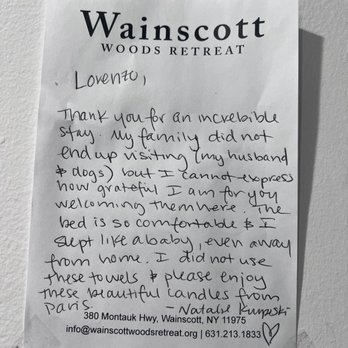 Wainscott
WOODS RETREAT
Lorenzo,
Thank you for an increbible
stay. My family did not
end up visiting (my husband
& dogs) but I cannot express
how grateful I am for you
welcoming them here. The
bed is so comfortable & I
slept like a baby, even away
from home. I did not use
these towels & please enjoy
these beautiful candles from
Paris. - Natalie
380 Montauk Hwy, Wainscott, NY 11975
info@wainscottwoodsretreat.org | 631.213.1833